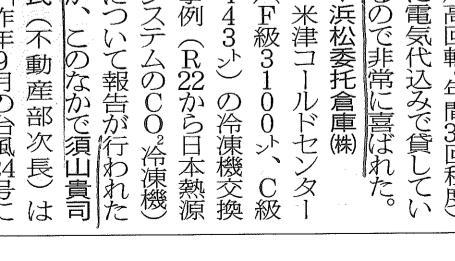 高回転・年間3回程度)
に電気代込みで貸してい
るので非常に喜ばれた。
浜松委托倉庫㈱
米津コールドセンター
F級3100㌧、C級
443㌧)の冷凍機交換
事例(R22から日本熱源
システムのCO₂冷凍機)
について報告が行われた
が、このなかで須山貴司
氏(不動産部次長)は
昨年9月の台風24号に